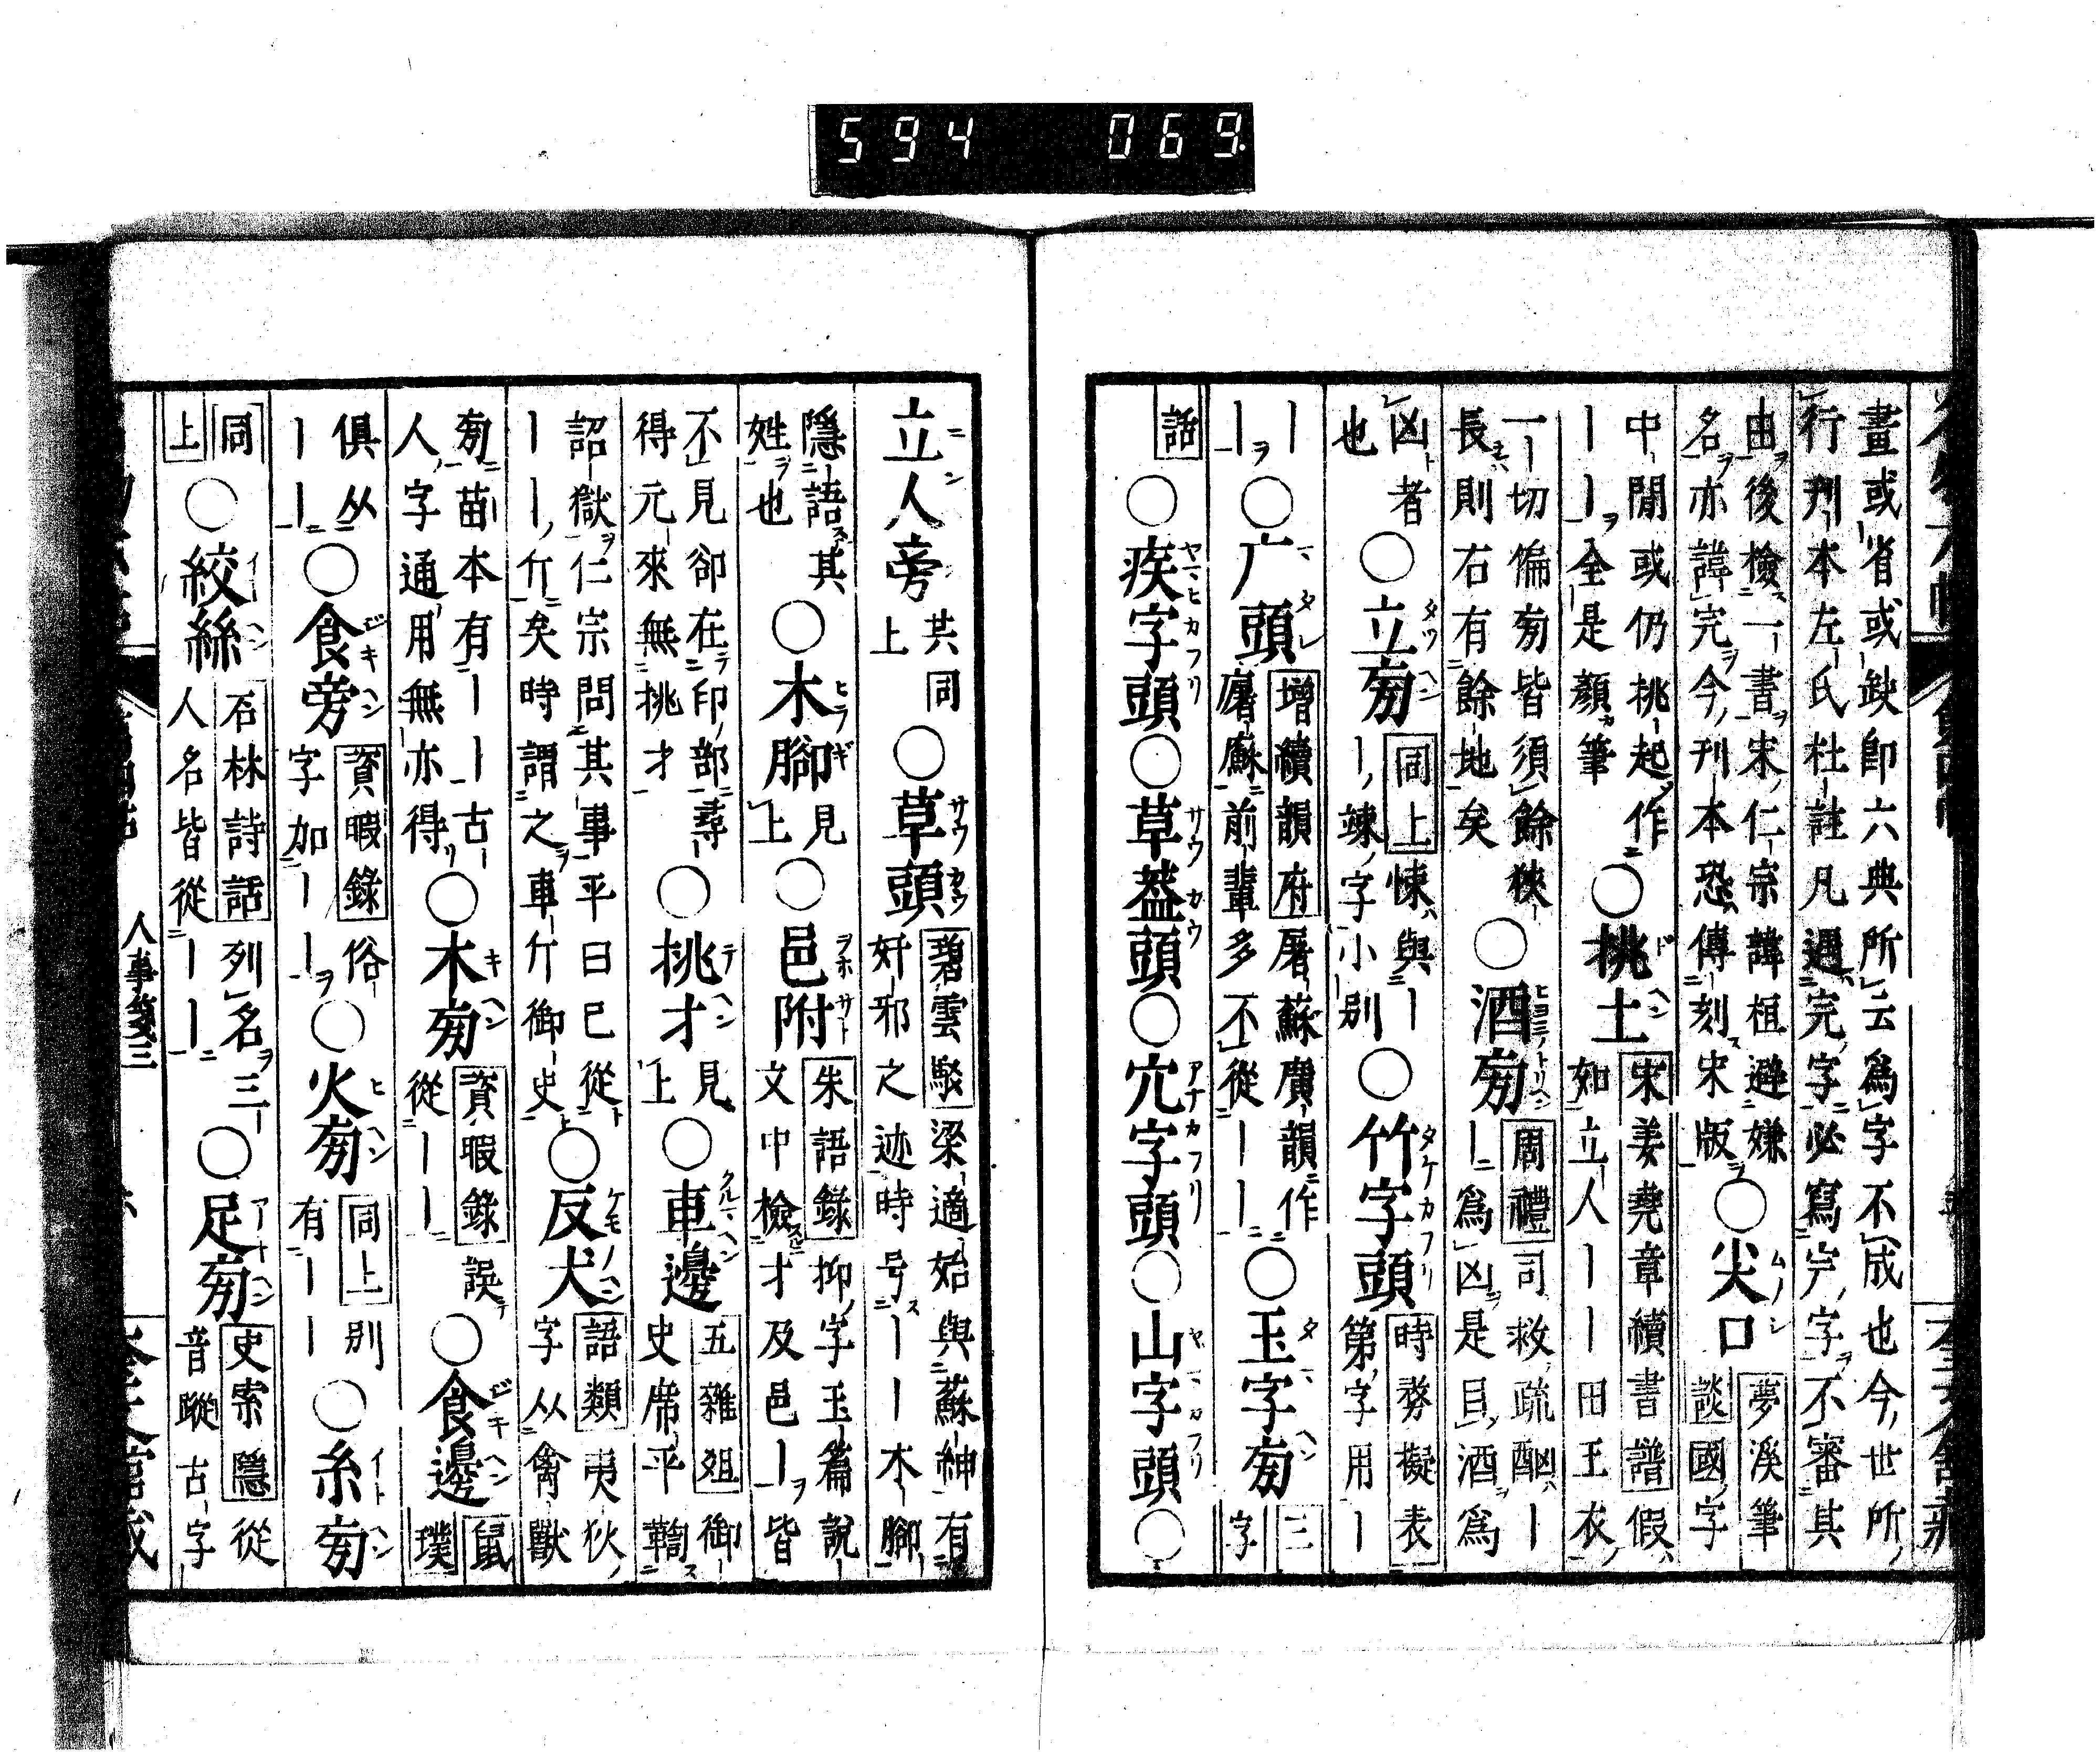 594 069
畫或省或缺即六典所云爲字不成也今世所
行刋本左氏杜註凡遇完字必寫字不審其
由後檢一書宋仁宗諱桓避嫌
名亦諱完今刋本恐傳刻宋版
○尖口
夢溪筆
談國字
中間或仍挑起作
ーー全是顔筆
○挑土
宋姜堯章續書譜假
如立人ーー田王衣
一ー切偏旁皆須餘狹
長則右有餘地矣
○酒旁
周禮司救疏酗ー
ー爲凶是目酒爲
凶者
也
○立旁
同上悚與ー
ー竦字小别
○竹字頭
時務擬表
第字用ー
ー
ー
○广頭
增續韻府屠蘇廣韻作
廜㢝前輩多不從ーー
○玉字旁
三
字
話
○疾字頭○草蓋頭○穴字頭○山字頭○
立人旁
共同
上
○草頭
碧雲騢梁適始與蘇紳有
奸邪之迹時号ーー木脚
隱語其
姓也
○木腳
見
上
○邑附
朱語錄抑字玉篇說
文中檢才及邑ー皆
不見卻在印部尋
得元來無挑才
○挑才
見
上
○車邊
五雜俎御
史席平鞫
詔獄仁宗問其事平曰已從
ーー斤矣時謂之車斤御史
○反犬
語類夷狄
字从禽獸
旁苗本有ーー古
人字通用無亦得
○木旁
資暇錄誤
從ーー
○食邊
鼠
璞
俱从
ーー
○食旁
資暇錄俗
字加ーー
○火旁
同上别
有ーー
○糸旁
同
上
○絞絲
石林詩話列名三
人名皆從ーー
○足旁
史索隱從
音蹤古字
人事箋三